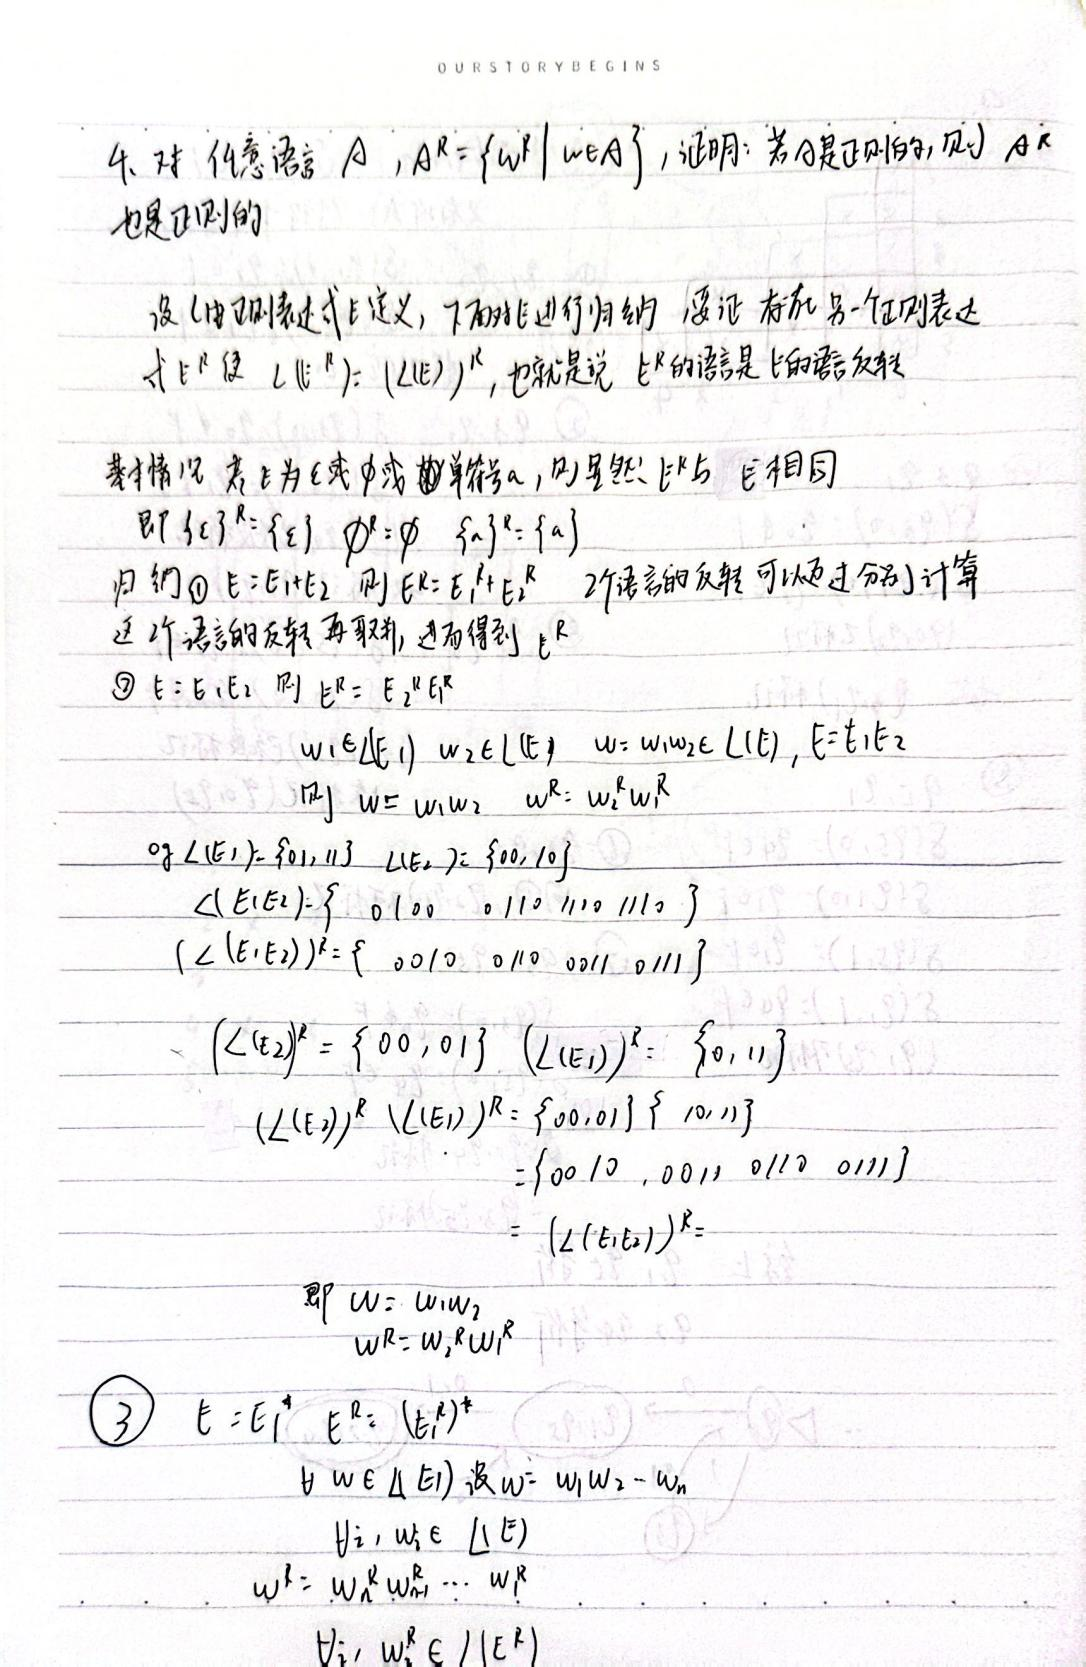 OURSTORYBEGINS
4. 对 任意语言 A , A^R = {w^R | w∈A} , 证明: 若A是正则的, 则 A^R
也是正则的
设 L由正则表达式E定义, 下面对E进行归纳 要证 存在另一个正则表达
式 E^R 使 L(E^R) = (L(E))^R , 也就是说 E^R的语言是E的语言反转
基本情况 若E为ε或φ或 单符号a, 则显然 E^R与 E相同
即 {ε}^R = {ε} φ^R = φ {a}^R = {a}
归纳① E = E1+E2 则 E^R = E1^R + E2^R 2个语言的反转可以通过分别计算
这2个语言的反转再取并, 进而得到 E^R
② E = E1E2 则 E^R = E2^R E1^R
w1∈L(E1) w2∈L(E) w = w1w2∈ L(E) , E = E1E2
则 w = w1w2 w^R = w2^R w1^R
eg L(E1) = {01, 11} L(E2) = {00, 10}
L(E1E2) = { 0100 0110 1110 1110 }
(L(E1E2))^R = { 0010 0110 0011 0111 }
(L(E2))^R = {00, 01} (L(E1))^R = {10, 11}
(L(E2))^R (L(E1))^R = {00, 01} {10, 11}
= {0010 , 0011 0110 0111}
= (L(E1E2))^R =
即 w = w1w2
w^R = w2^R w1^R
③ E = E1* E^R = (E1^R)*
∀ w∈ L(E1) 设 w = w1w2 - wn
∀i, wi ∈ L(E)
w^R = wn^R wn-1^R ... w1^R
∀i, wi^R ∈ L(E^R)